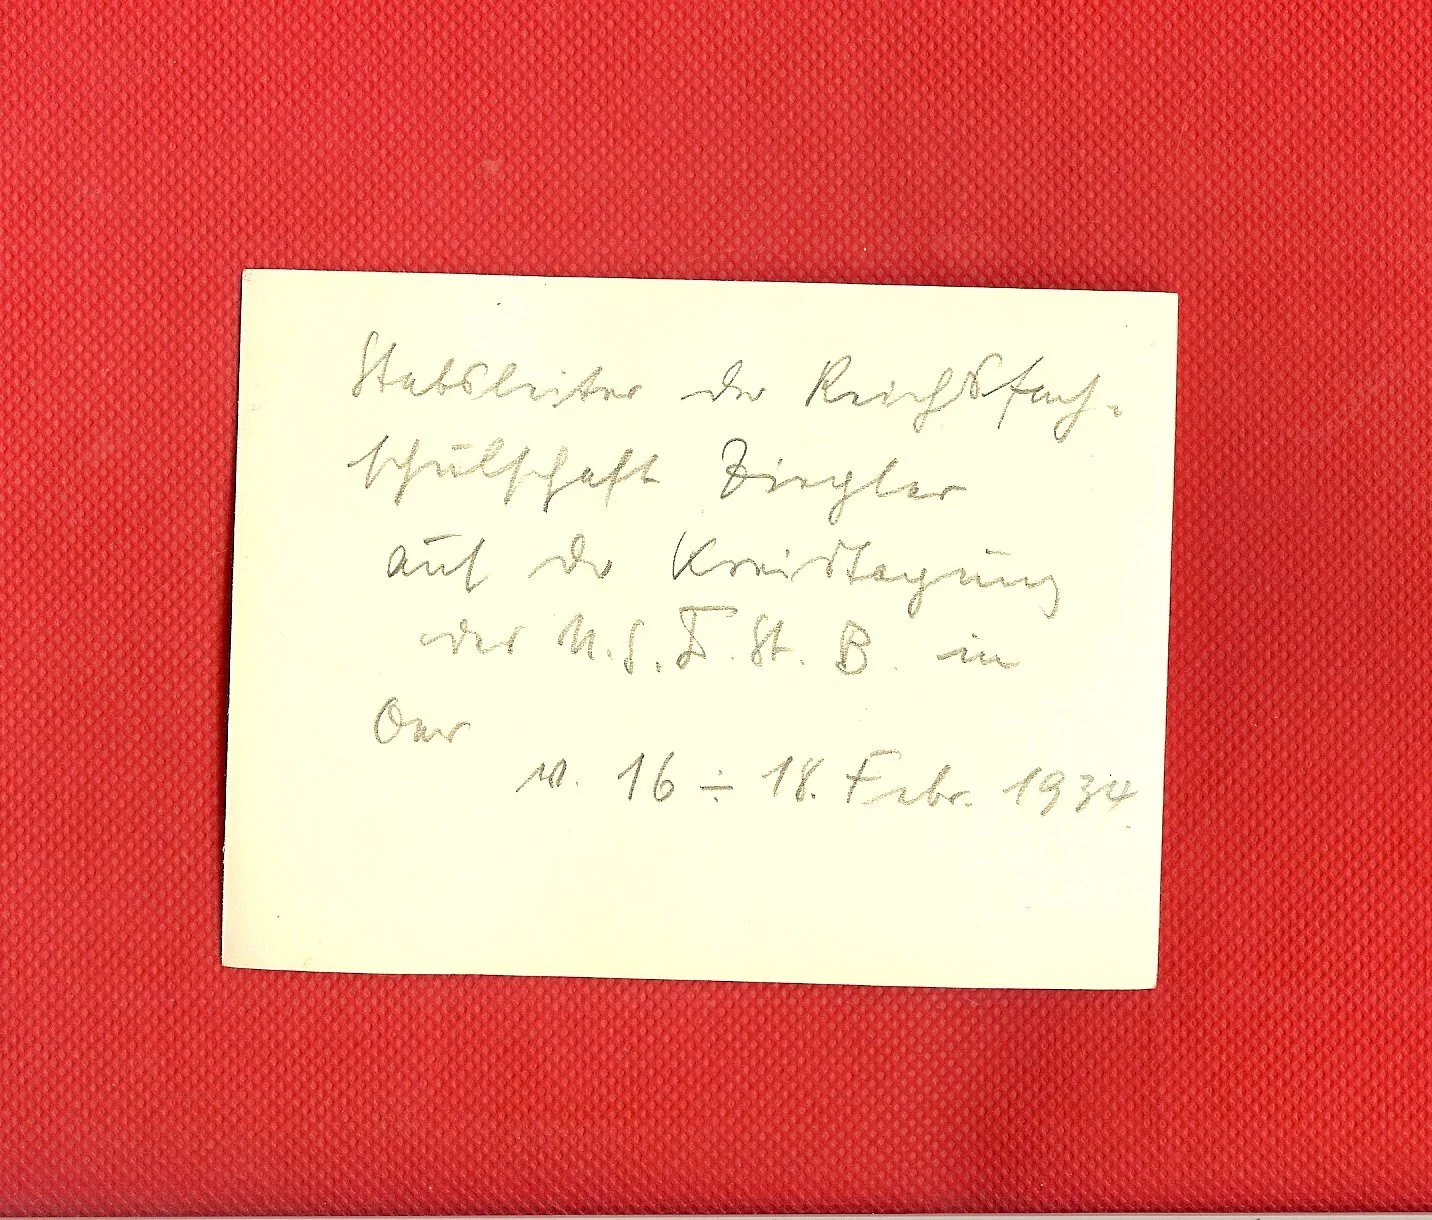 Stabsleiter der Reichsfach-
schulschaft Ziegler
auf der Kreistagung
des N.S.D.St.B. in
Oer
v. 16 ÷ 18. Febr. 1934